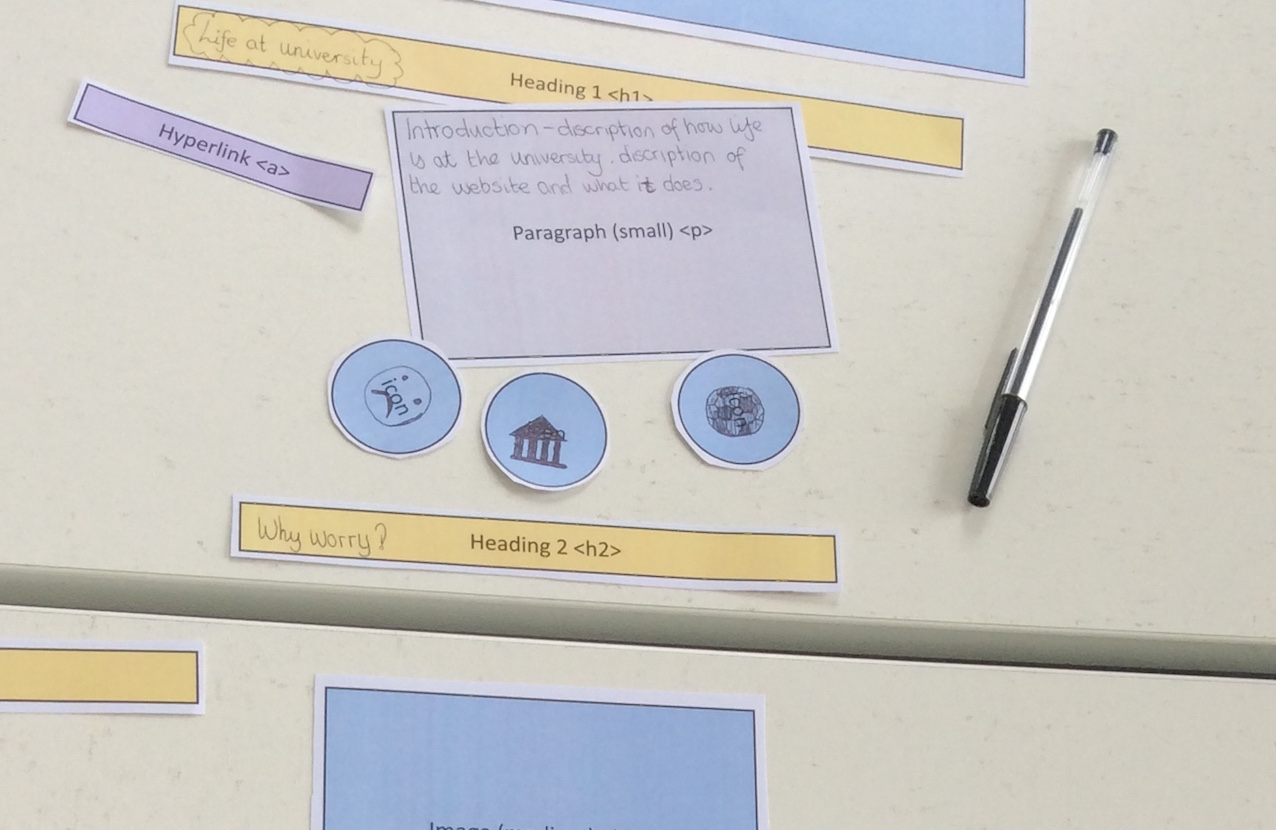 Life at university
Heading 1 <h1>
Hyperlink <a>
Introduction - discription of how life
is at the university. discription of
the website and what it does.
Paragraph (small) <p>
icon
icon
Why worry?
Heading 2 <h2>